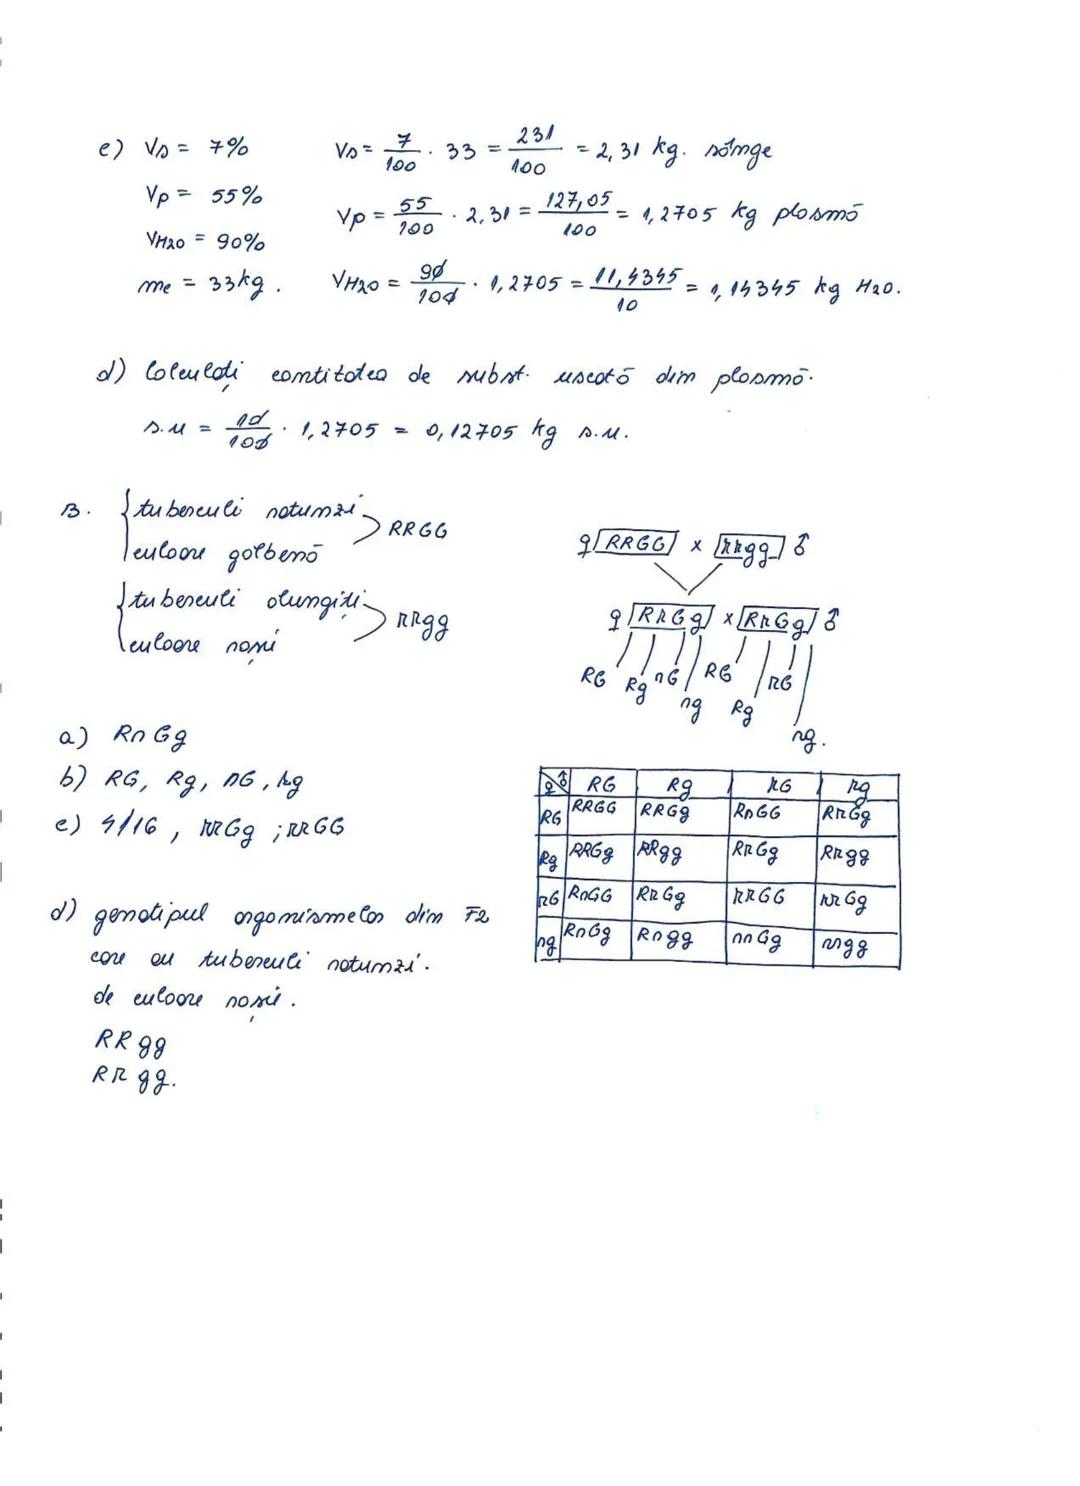 c) Vs = 7%
Vs = 7/100 · 33 = 231/100 = 2,31 kg. sânge
Vp = 55%
Vp = 55/100 · 2,31 = 127,05/100 = 1,2705 kg plasmă
VH2O = 90%
mc = 33kg.
VH2O = 90/100 · 1,2705 = 11,4345/10 = 1,14345 kg H2O.
d) Calculați cantitatea de subst. uscată din plasmă.
s.u = 10/100 · 1,2705 = 0,12705 kg s.u.
B. tuberculi rotunzi
culoare galbenă
RRGG
tuberculi alungiți
culoare roșii
rrgg
♀ RRGG x rrgg ♂
♀ RrGg x RrGg ♂
RG Rg rG rg RG Rg rG rg.
a) RrGg
b) RG, Rg, rG, rg
c) 4/16, rrGg ; rrGG
d) genotipul organismelor din F2
care au tuberculi rotunzi.
de culoare roșie.
RRgg
Rrgg.
♀ ♂ RG Rg rG rg
RG RRGG RRGg RrGG RrGg
Rg RRGg RRgg RrGg Rrgg
rG RrGG RrGg rrGG rrGg
rg RrGg Rrgg rrGg rrgg